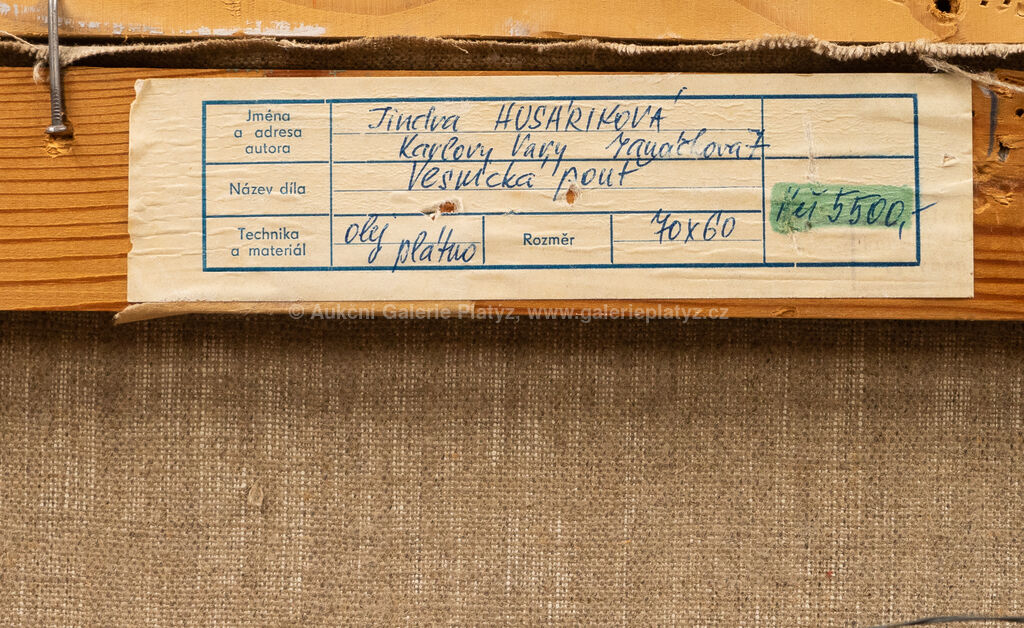 Jména
a adresa
autora
Jindra HUSÁRIKOVÁ
Karlovy Vary Janáčkova 7
Název díla
Vesnická pouť
Kčs 5500,-
Technika
a materiál
olej
plátno
Rozměr
70x60
© Aukční Galerie Platýz, www.galerieplatyz.cz